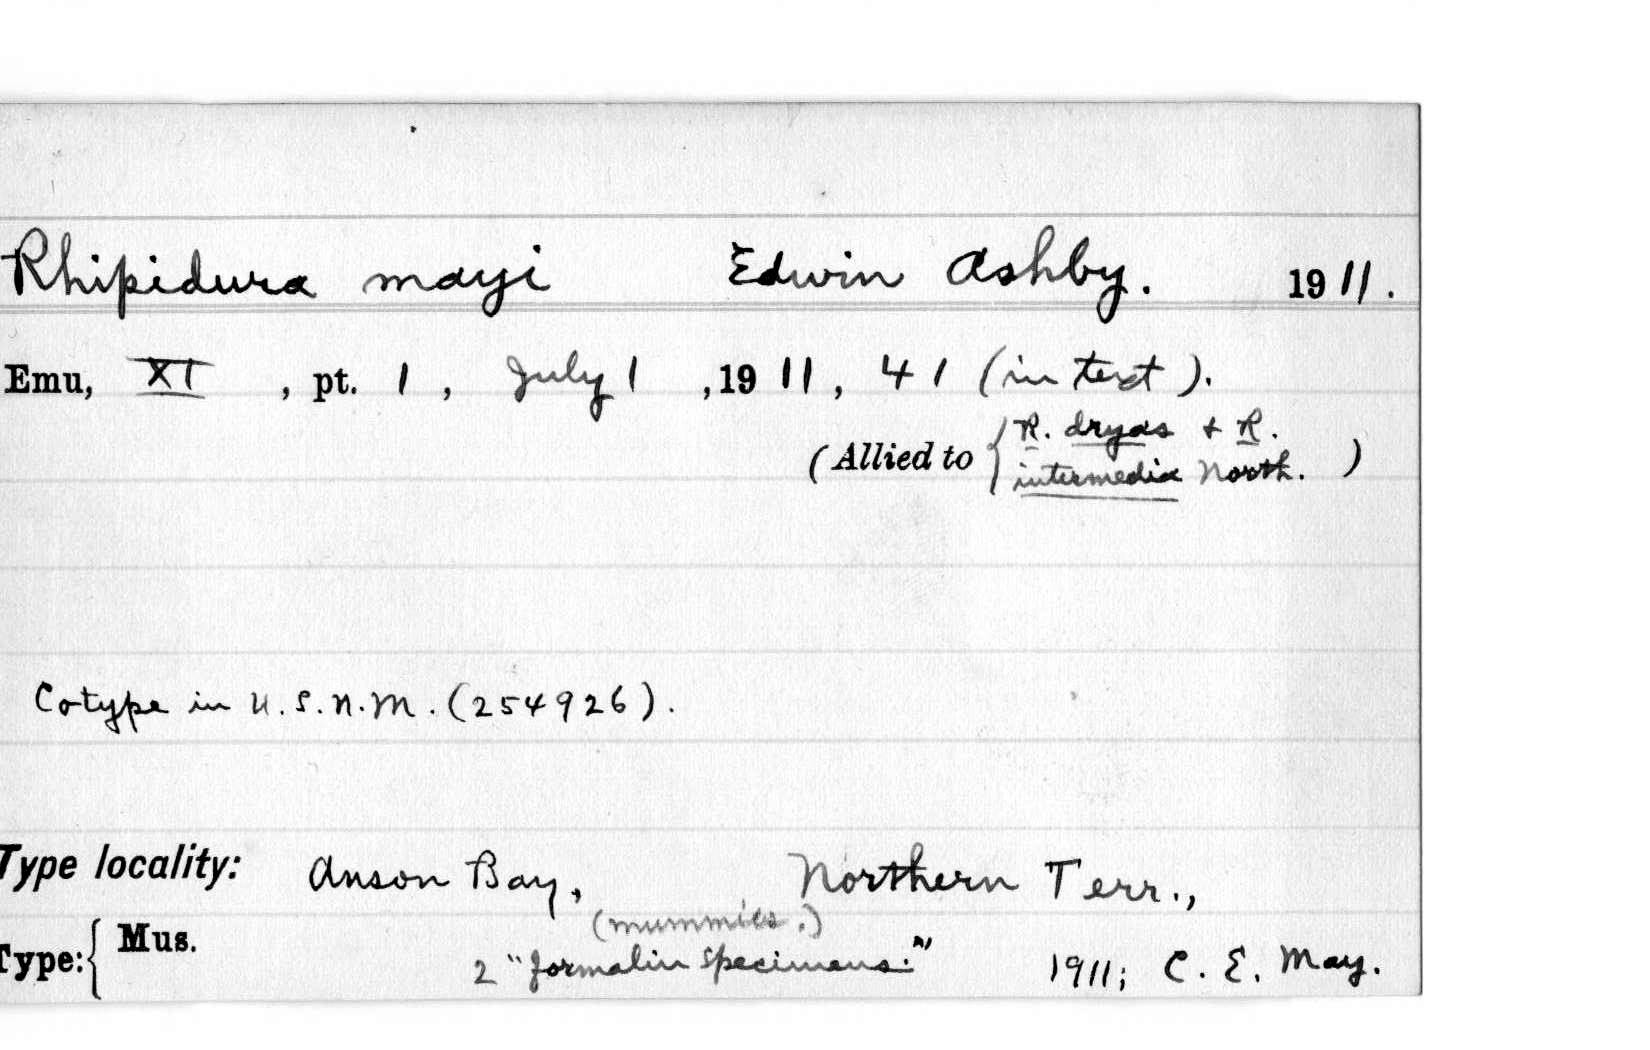 Rhipidura mayi Edwin Ashby. 1911.
Emu, XI, pt. 1, July 1, 1911, 41 (in text).
(Allied to { R. dryas & R.
intermedia North. )
Cotype in U.S.N.M. (254926).
Type locality: Anson Bay, Northern Terr.,
(mummies.)
Type: { Mus. 2 "formalin specimens." 1911; C. E. May.